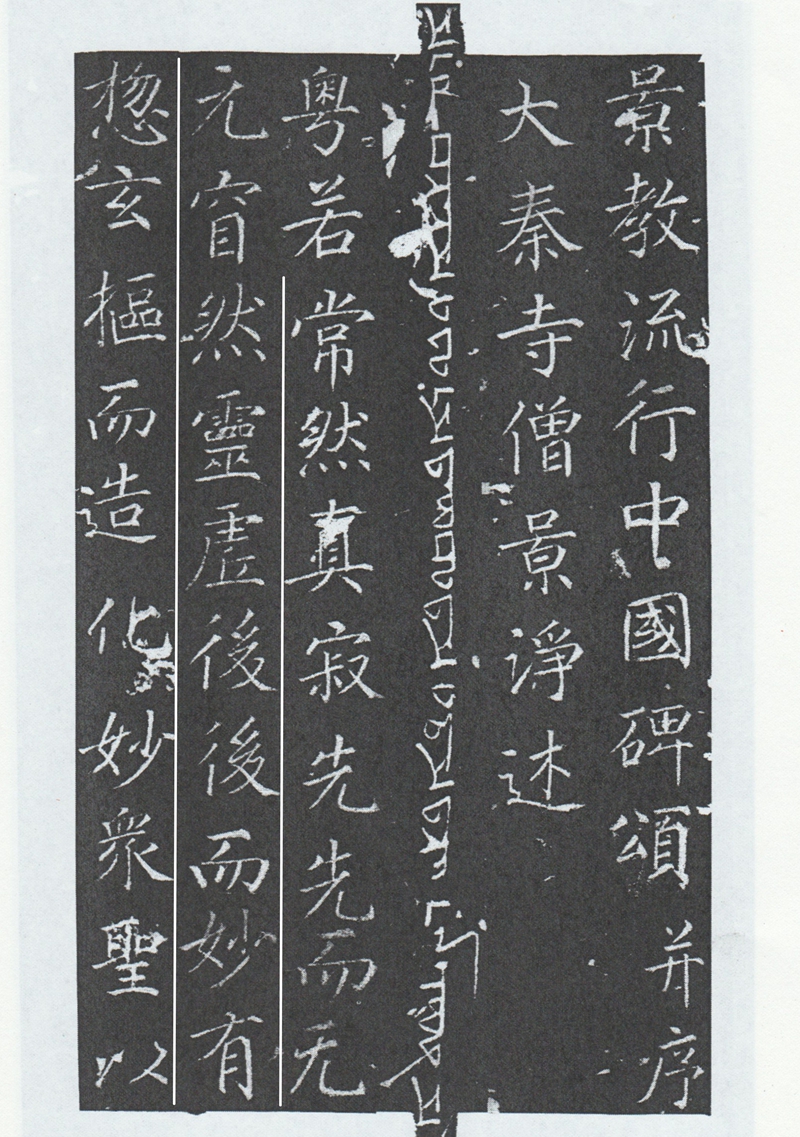 景教流行中國碑頌并序
大秦寺僧景淨述
ܐܕܡ ܩܫܝܫܐ ܘܟܘܪܐܦܝܣܩܘܦܐ ܘܦܐܦܫܝ ܕܨܝܢܣܬܐܢ
粤若常然真寂先先而无
元窅然靈虛後後而妙有
惣玄樞而造化妙衆聖以